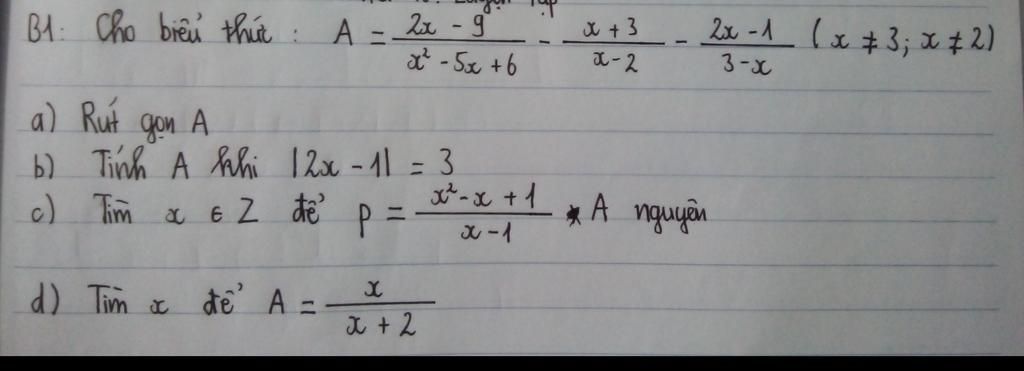 B1: Cho biểu thức : A = \frac{2x - 9}{x² - 5x + 6} - \frac{x + 3}{x - 2} - \frac{2x - 1}{3 - x} ( x ≠ 3; x ≠ 2)
a) Rút gọn A
b) Tính A khi |2x - 1| = 3
c) Tìm x ∈ Z để P = \frac{x² - x + 1}{x - 1} * A nguyên
d) Tìm x để A = \frac{x}{x + 2}